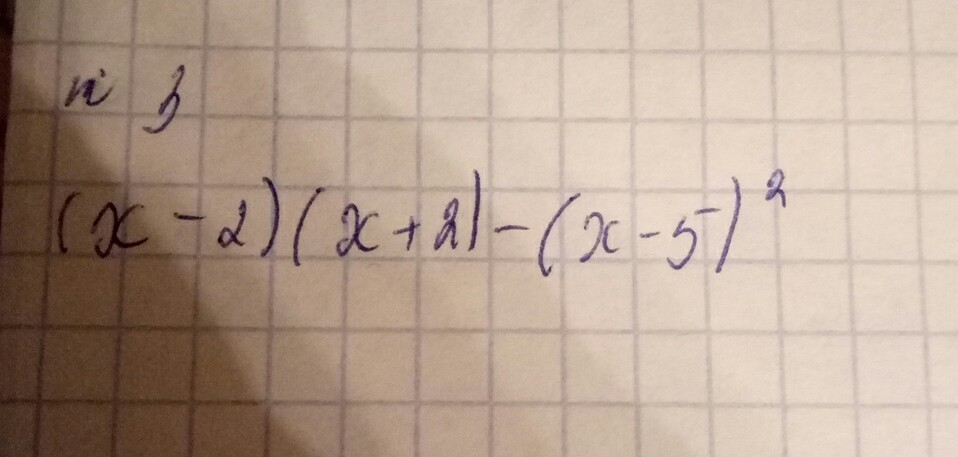 № 3
(x - 2)(x + 2) - (x - 5)²